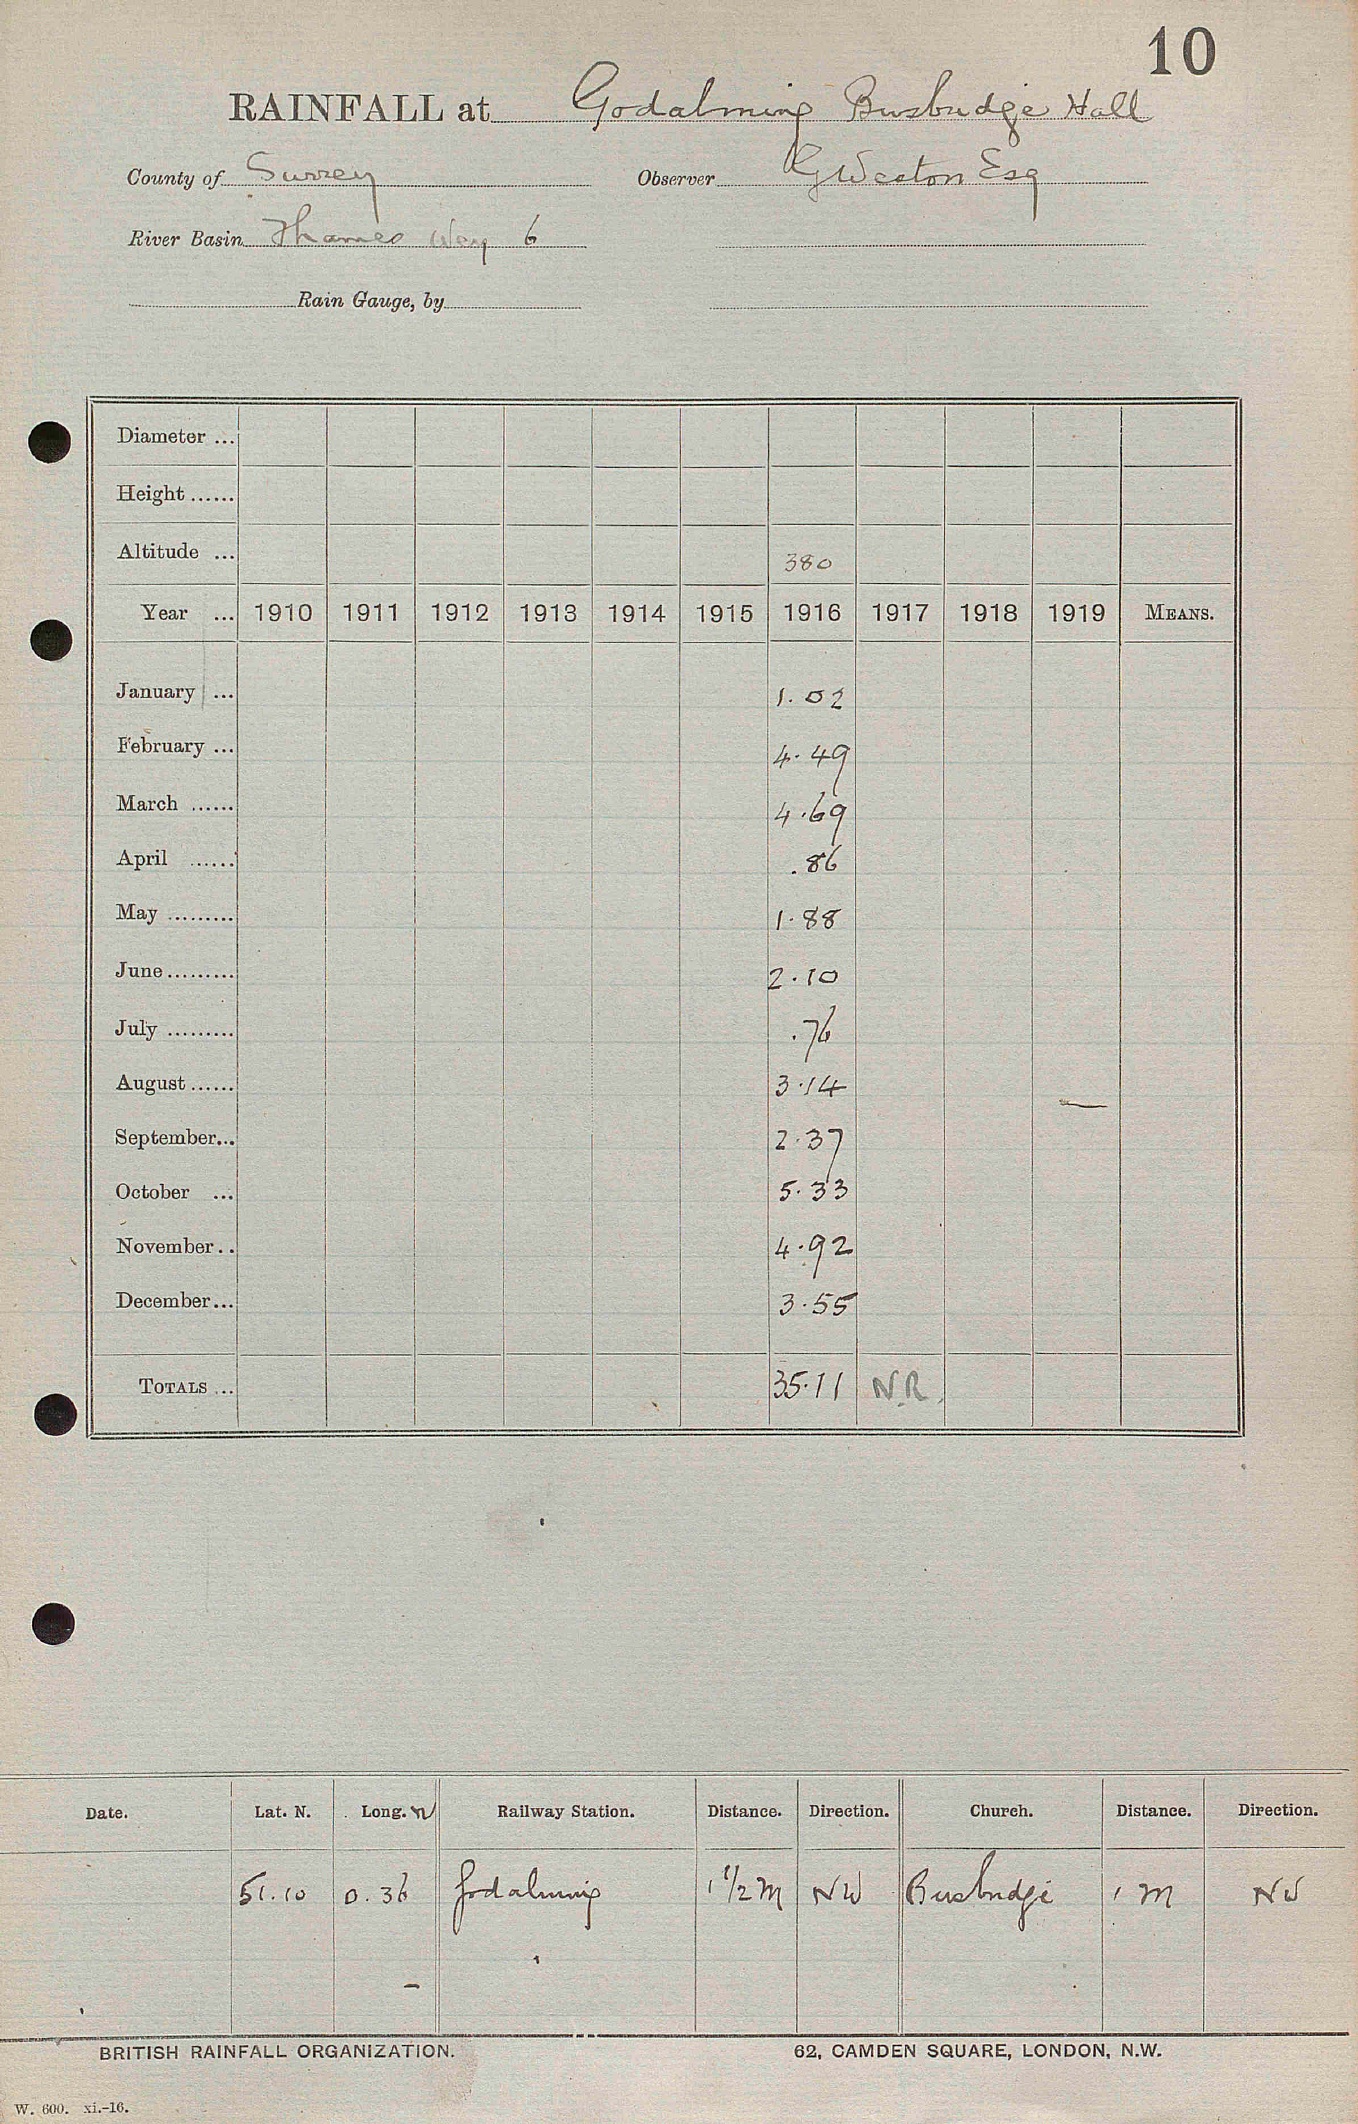 10
RAINFALL at Godalming Busbridge Hall
County of Surrey Observer G Weston Esq
River Basin Thames Wey 6
Rain Gauge, by
Diameter ...
Height ......
Altitude ... 380
Year ... 1910 1911 1912 1913 1914 1915 1916 1917 1918 1919 MEANS.
January ... 1.02
February ... 4.49
March ...... 4.69
April ...... .86
May ......... 1.88
June ......... 2.10
July ......... .76
August ...... 3.14
September... 2.37
October ... 5.33
November .. 4.92
December... 3.55
TOTALS ... 35.11 N.R.
Date. Lat. N. Long. W Railway Station. Distance. Direction. Church. Distance. Direction.
51.10 0.36 Godalming 1 1/2 M NW Busbridge 1 M NW
BRITISH RAINFALL ORGANIZATION. 62, CAMDEN SQUARE, LONDON, N.W.
W. 600. xi.-16.